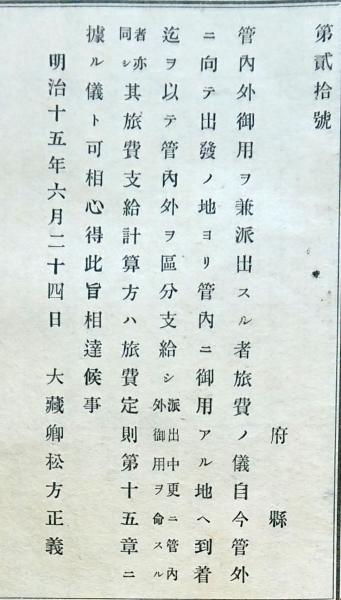 第貳拾號
府縣
管內外御用ヲ兼派出スル者旅費ノ儀自今管外
ニ向テ出發ノ地ヨリ管內ニ御用アル地ヘ到着
迄ヲ以テ管內外ヲ區分支給シ派出中更ニ管內外御用ヲ命スル
者亦同シ其旅費支給計算方ハ旅費定則第十五章ニ
據ル儀ト可相心得此旨相達候事
明治十五年六月二十四日 大藏卿松方正義